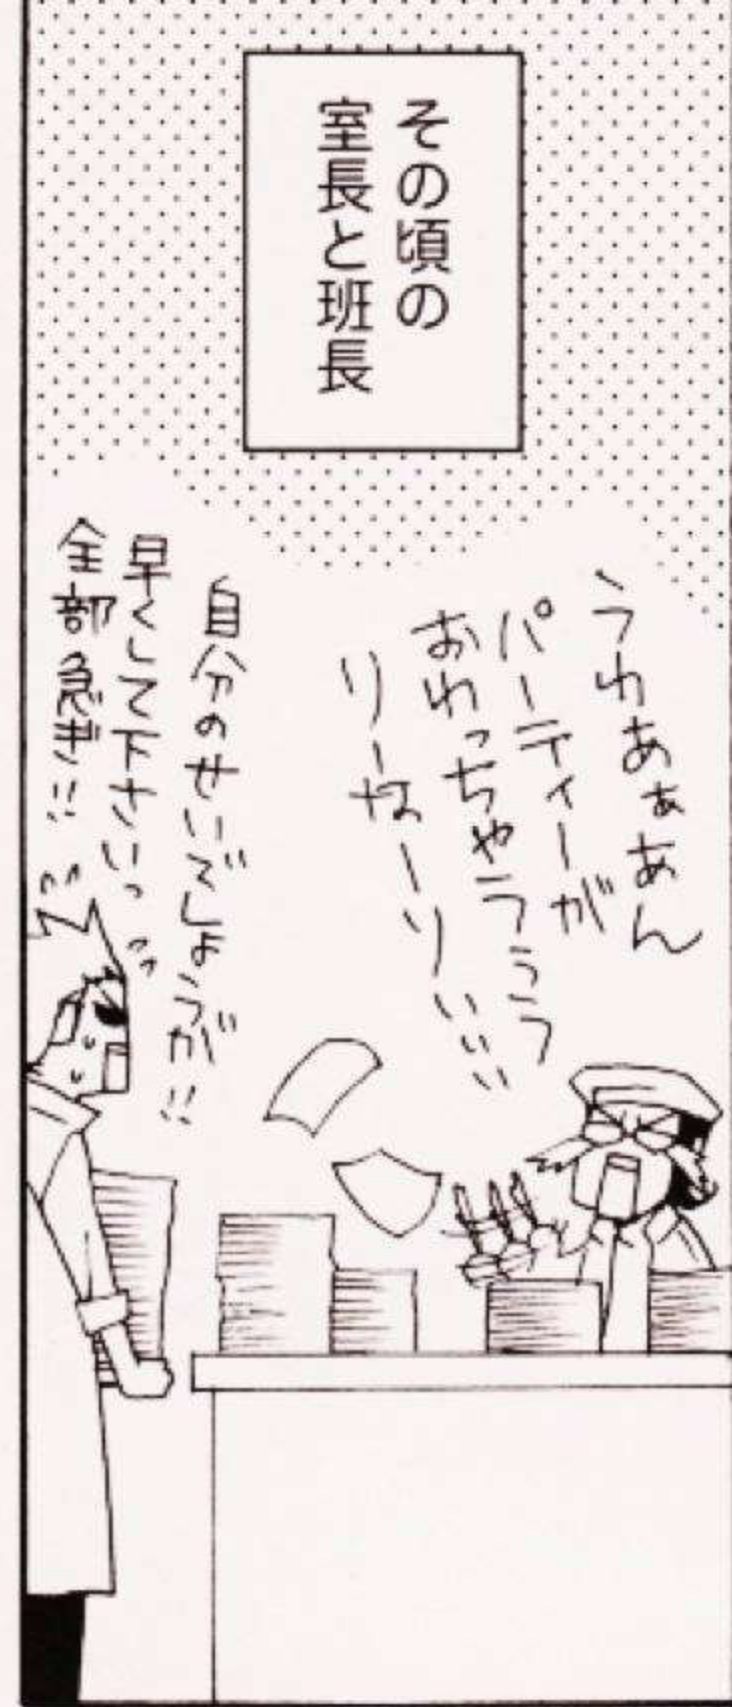 その頃の
室長と班長
うわあぁあん
パーティーが
おわっちゃうぅう
りーなーりぃぃぃ
自分のせいでしょうが!!
早くして下さいっ
全部急ぎ!!